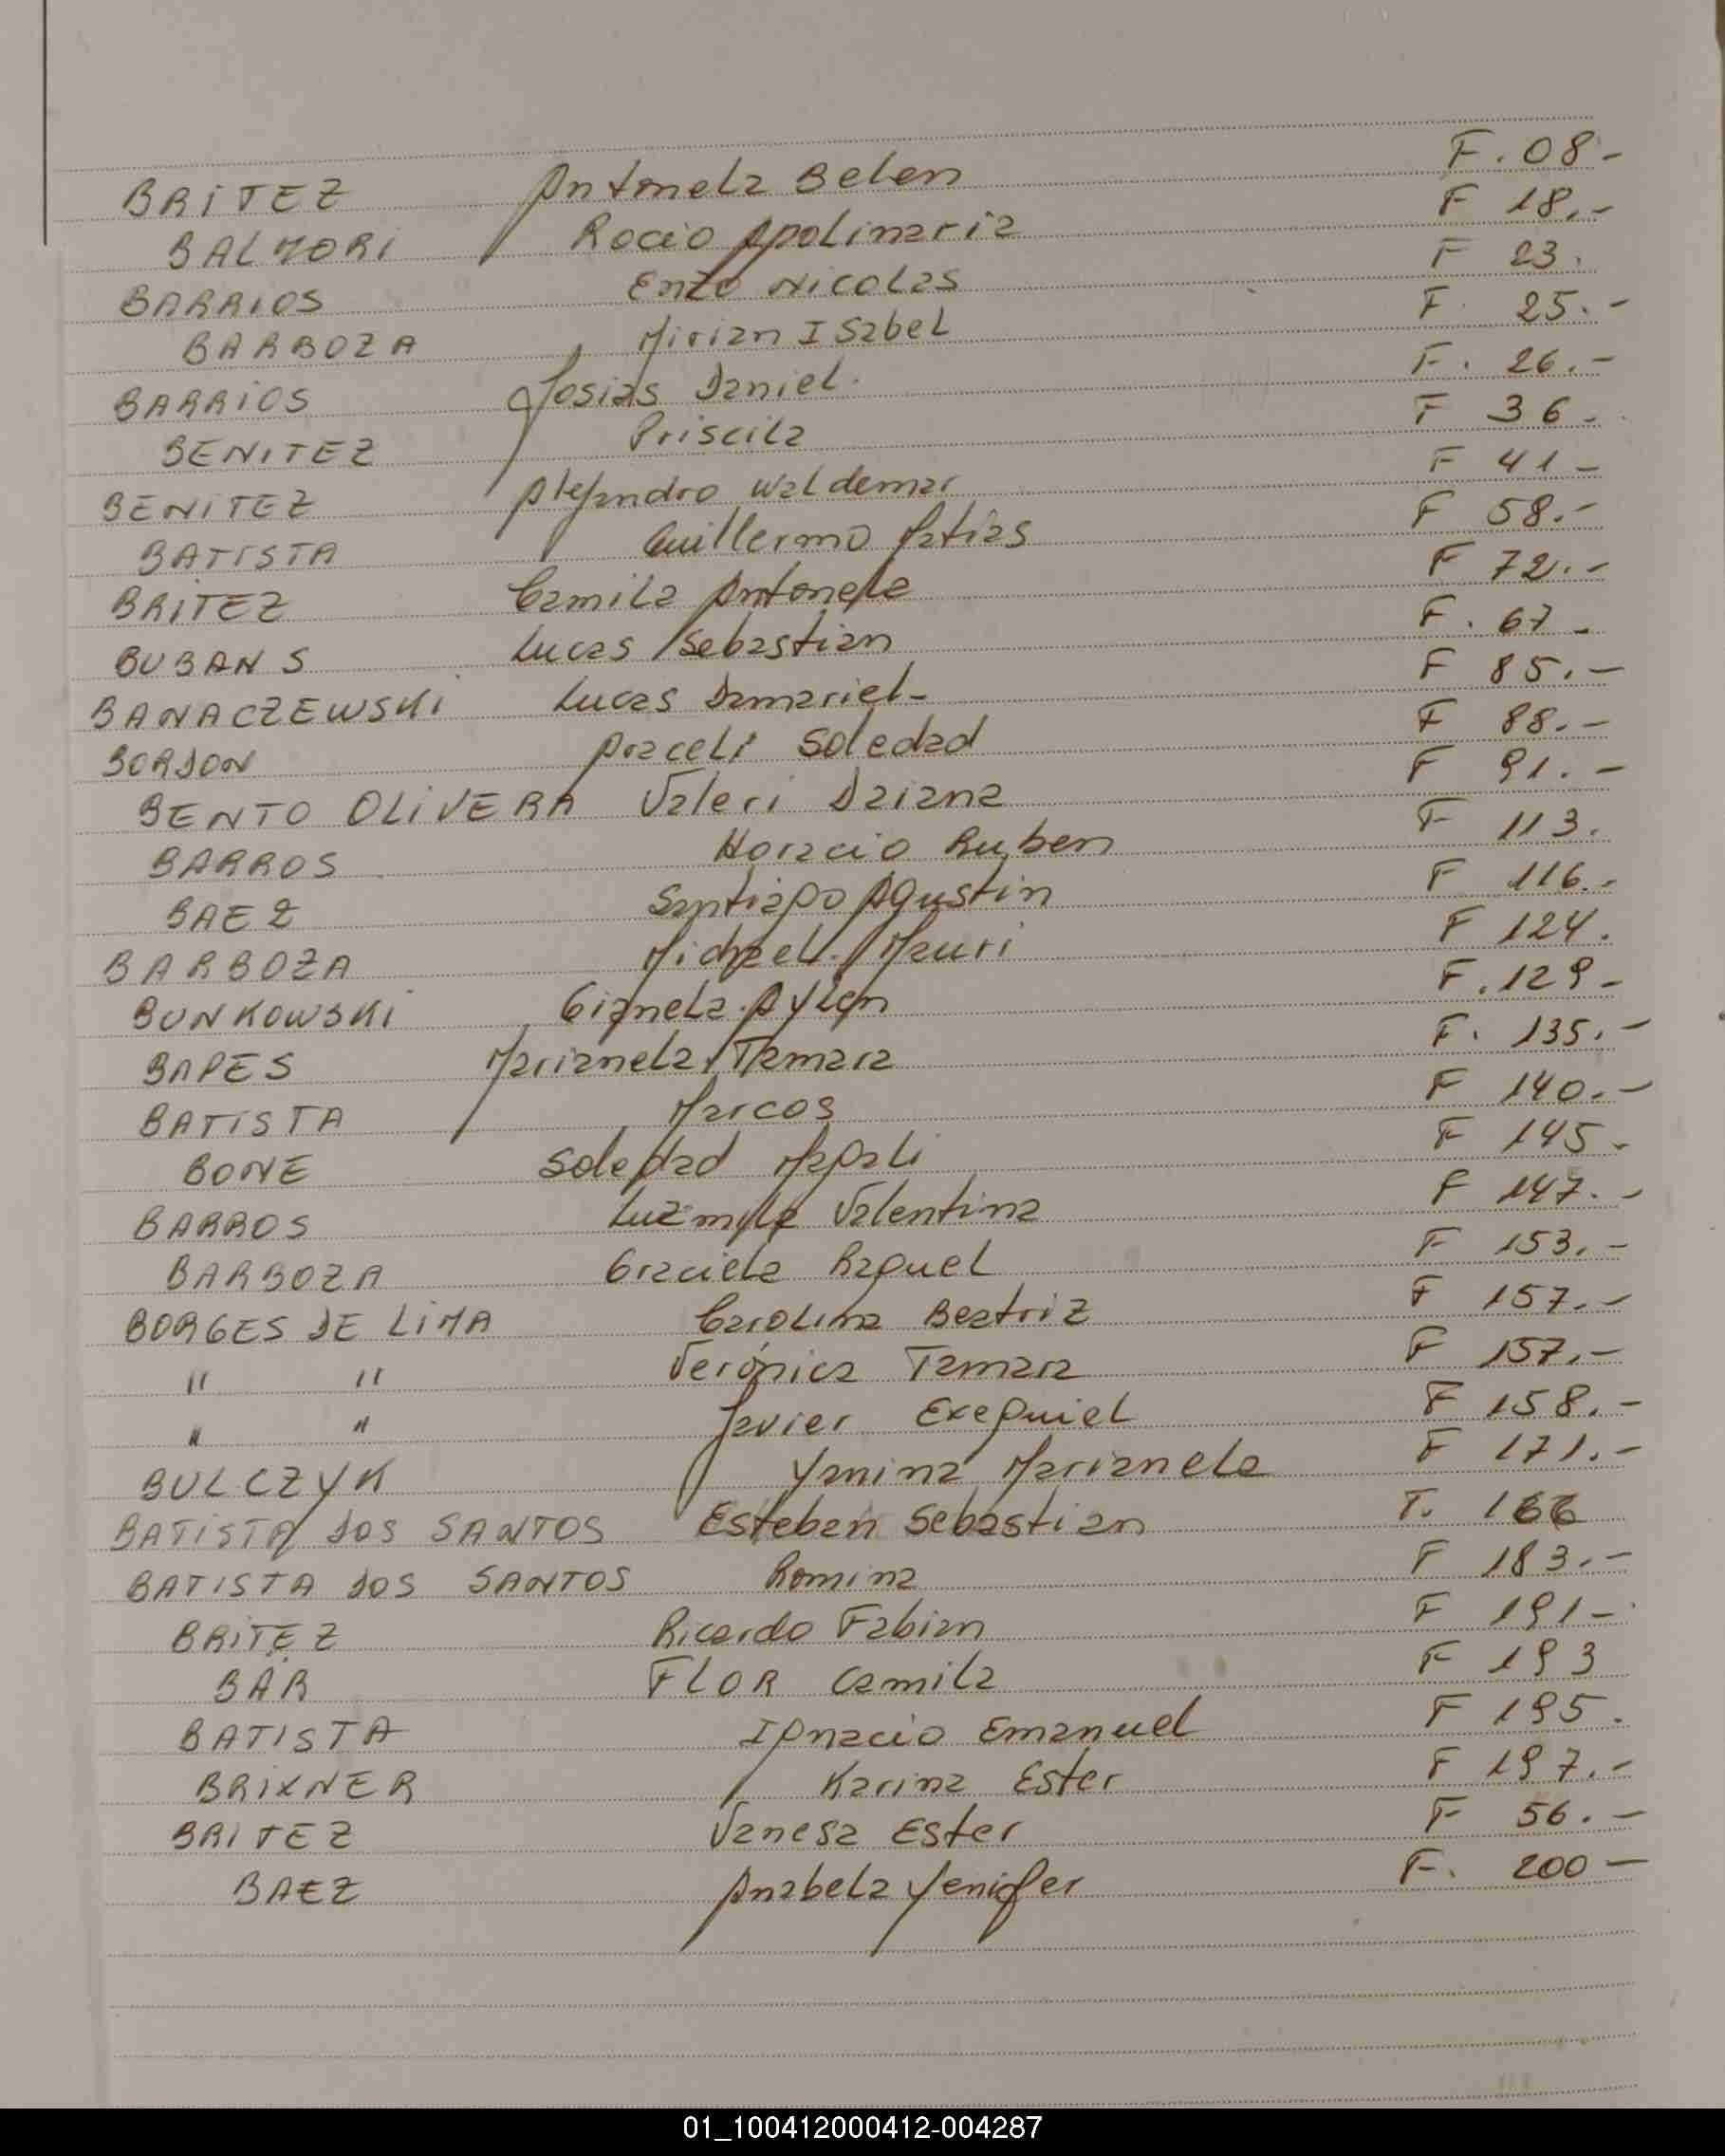 BRITEZ Antonela Belen F. 08-
BALMORI Rocio Apolinaria F 18.-
BARRIOS Enzo Nicolas F 23.
BARBOZA Mirian Isabel F. 25.-
BARRIOS Josias Daniel. F. 26.-
BENITEZ Priscila F 36.
BENITEZ Alejandro Waldemar F 41-
BATISTA Guillermo Matias F 58.-
BRITEZ Camila Antonela F 72.-
BUBANS Lucas Sebastian F. 67-
BANACZEWSKI Lucas Damariel- F 85.-
BORDON Araceli Soledad F 88.-
BENTO OLIVERA Valeri Daiana F 91.-
BARROS Horacio Ruben F 113.
BAEZ Santiago Agustin F 116.-
BARBOZA Michael Mauri F 124.
BUNKOWSKI Gianela Aylen F. 129-
BAPES Marianela Tamara F. 135.-
BATISTA Marcos F 140.-
BONE Soledad Magali F 145.
BARROS Luzmila Valentina F 147.-
BARBOZA Graciela Raquel F 153.-
BORGES DE LIMA Carolina Beatriz F 157.-
" " Verónica Tamara F 157.-
" " Javier Exequiel F 158.-
BULCZYK Yanina Marianela F 171.-
BATISTA DOS SANTOS Esteban Sebastian F. 166
BATISTA DOS SANTOS Romina F 183.-
BRITEZ Ricardo Fabian F 191-
BÄR FLOR Camila F 193
BATISTA Ignacio Emanuel F 195.
BRIXNER Karina Ester F 197.-
BRITEZ Vanesa Ester F 56.-
BAEZ Anabela Yenifer F. 200-
01_100412000412-004287